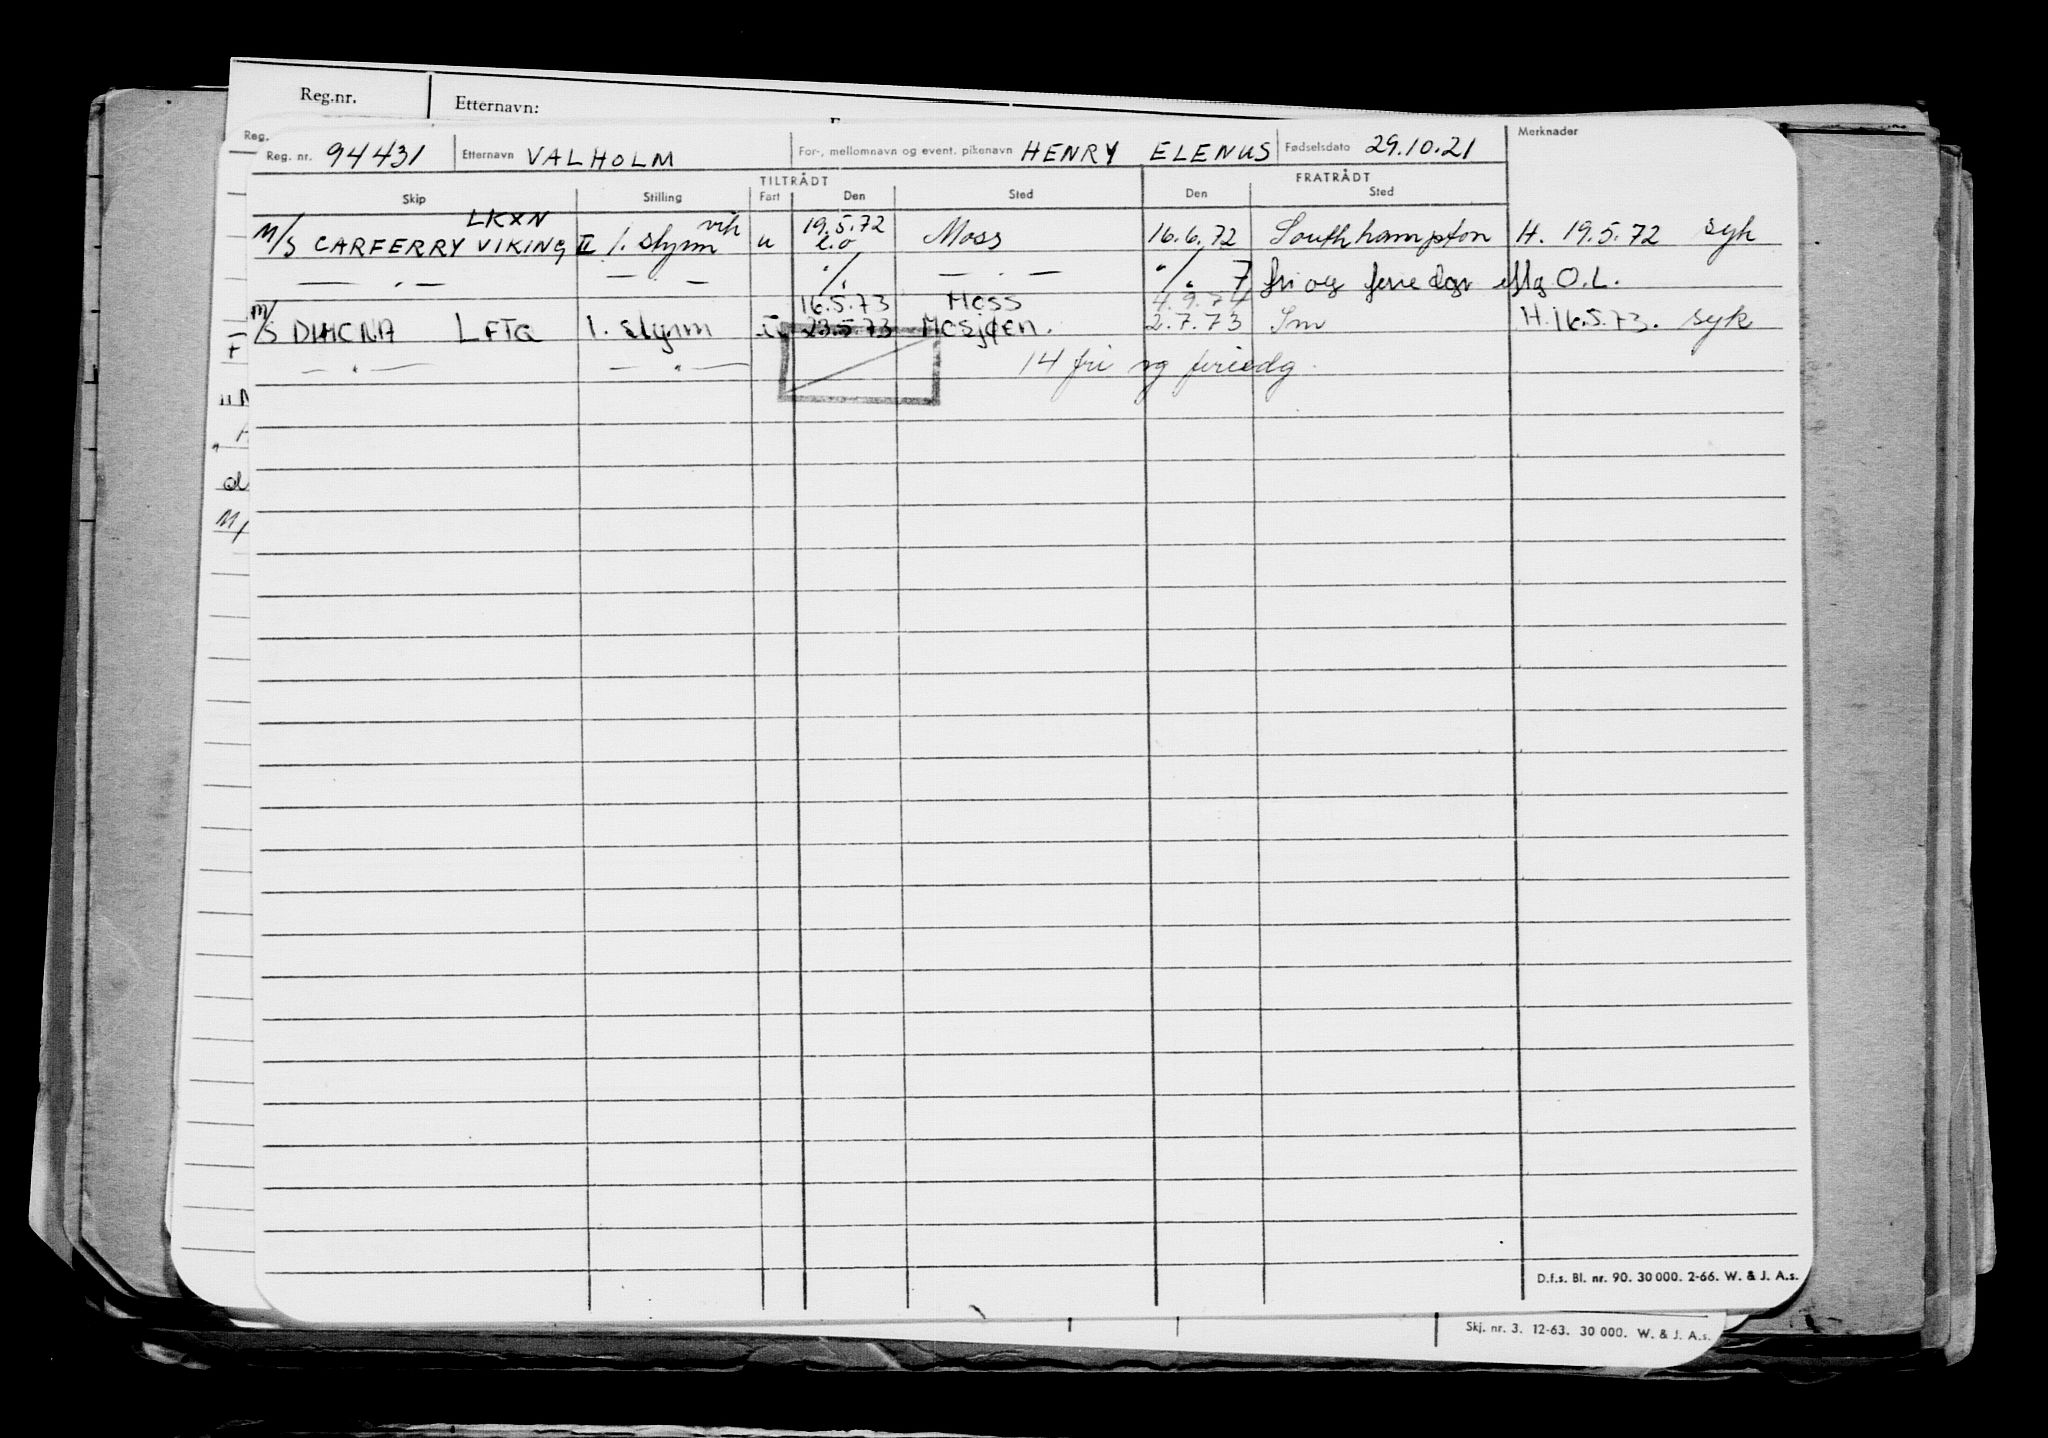 Reg.nr. Etternavn:
Reg.
Reg. nr. 94431 Etternavn VALHOLM For-, mellomnavn og event. pikenavn HENRY ELENUS Fødselsdato 29.10.21 Merknader
TILTRÅDT FRATRÅDT
Skip Stilling Fart Den Sted Den Sted
LKXN vik 19.5.72
M/S CARFERRY VIKING II 1. styrm u e.o Moss 16.6.72 Southhampton H. 19.5.72 syk
— . — — . — ./. — . — ./. 7 fri og ferie dgr O.L.
16.5.73 Moss 4.9.74
M/S LFTG 1. styrm 23.5.73 Mosjøen. 2.7.73 Sm H.16.5.73. syk
— " — — " — 14 fri og feriedg.
D.f.s. Bl. nr. 90. 30 000. 2-66. W. & J. A.s.
Skj. nr. 3. 12-63. 30 000. W. & J. A.s.